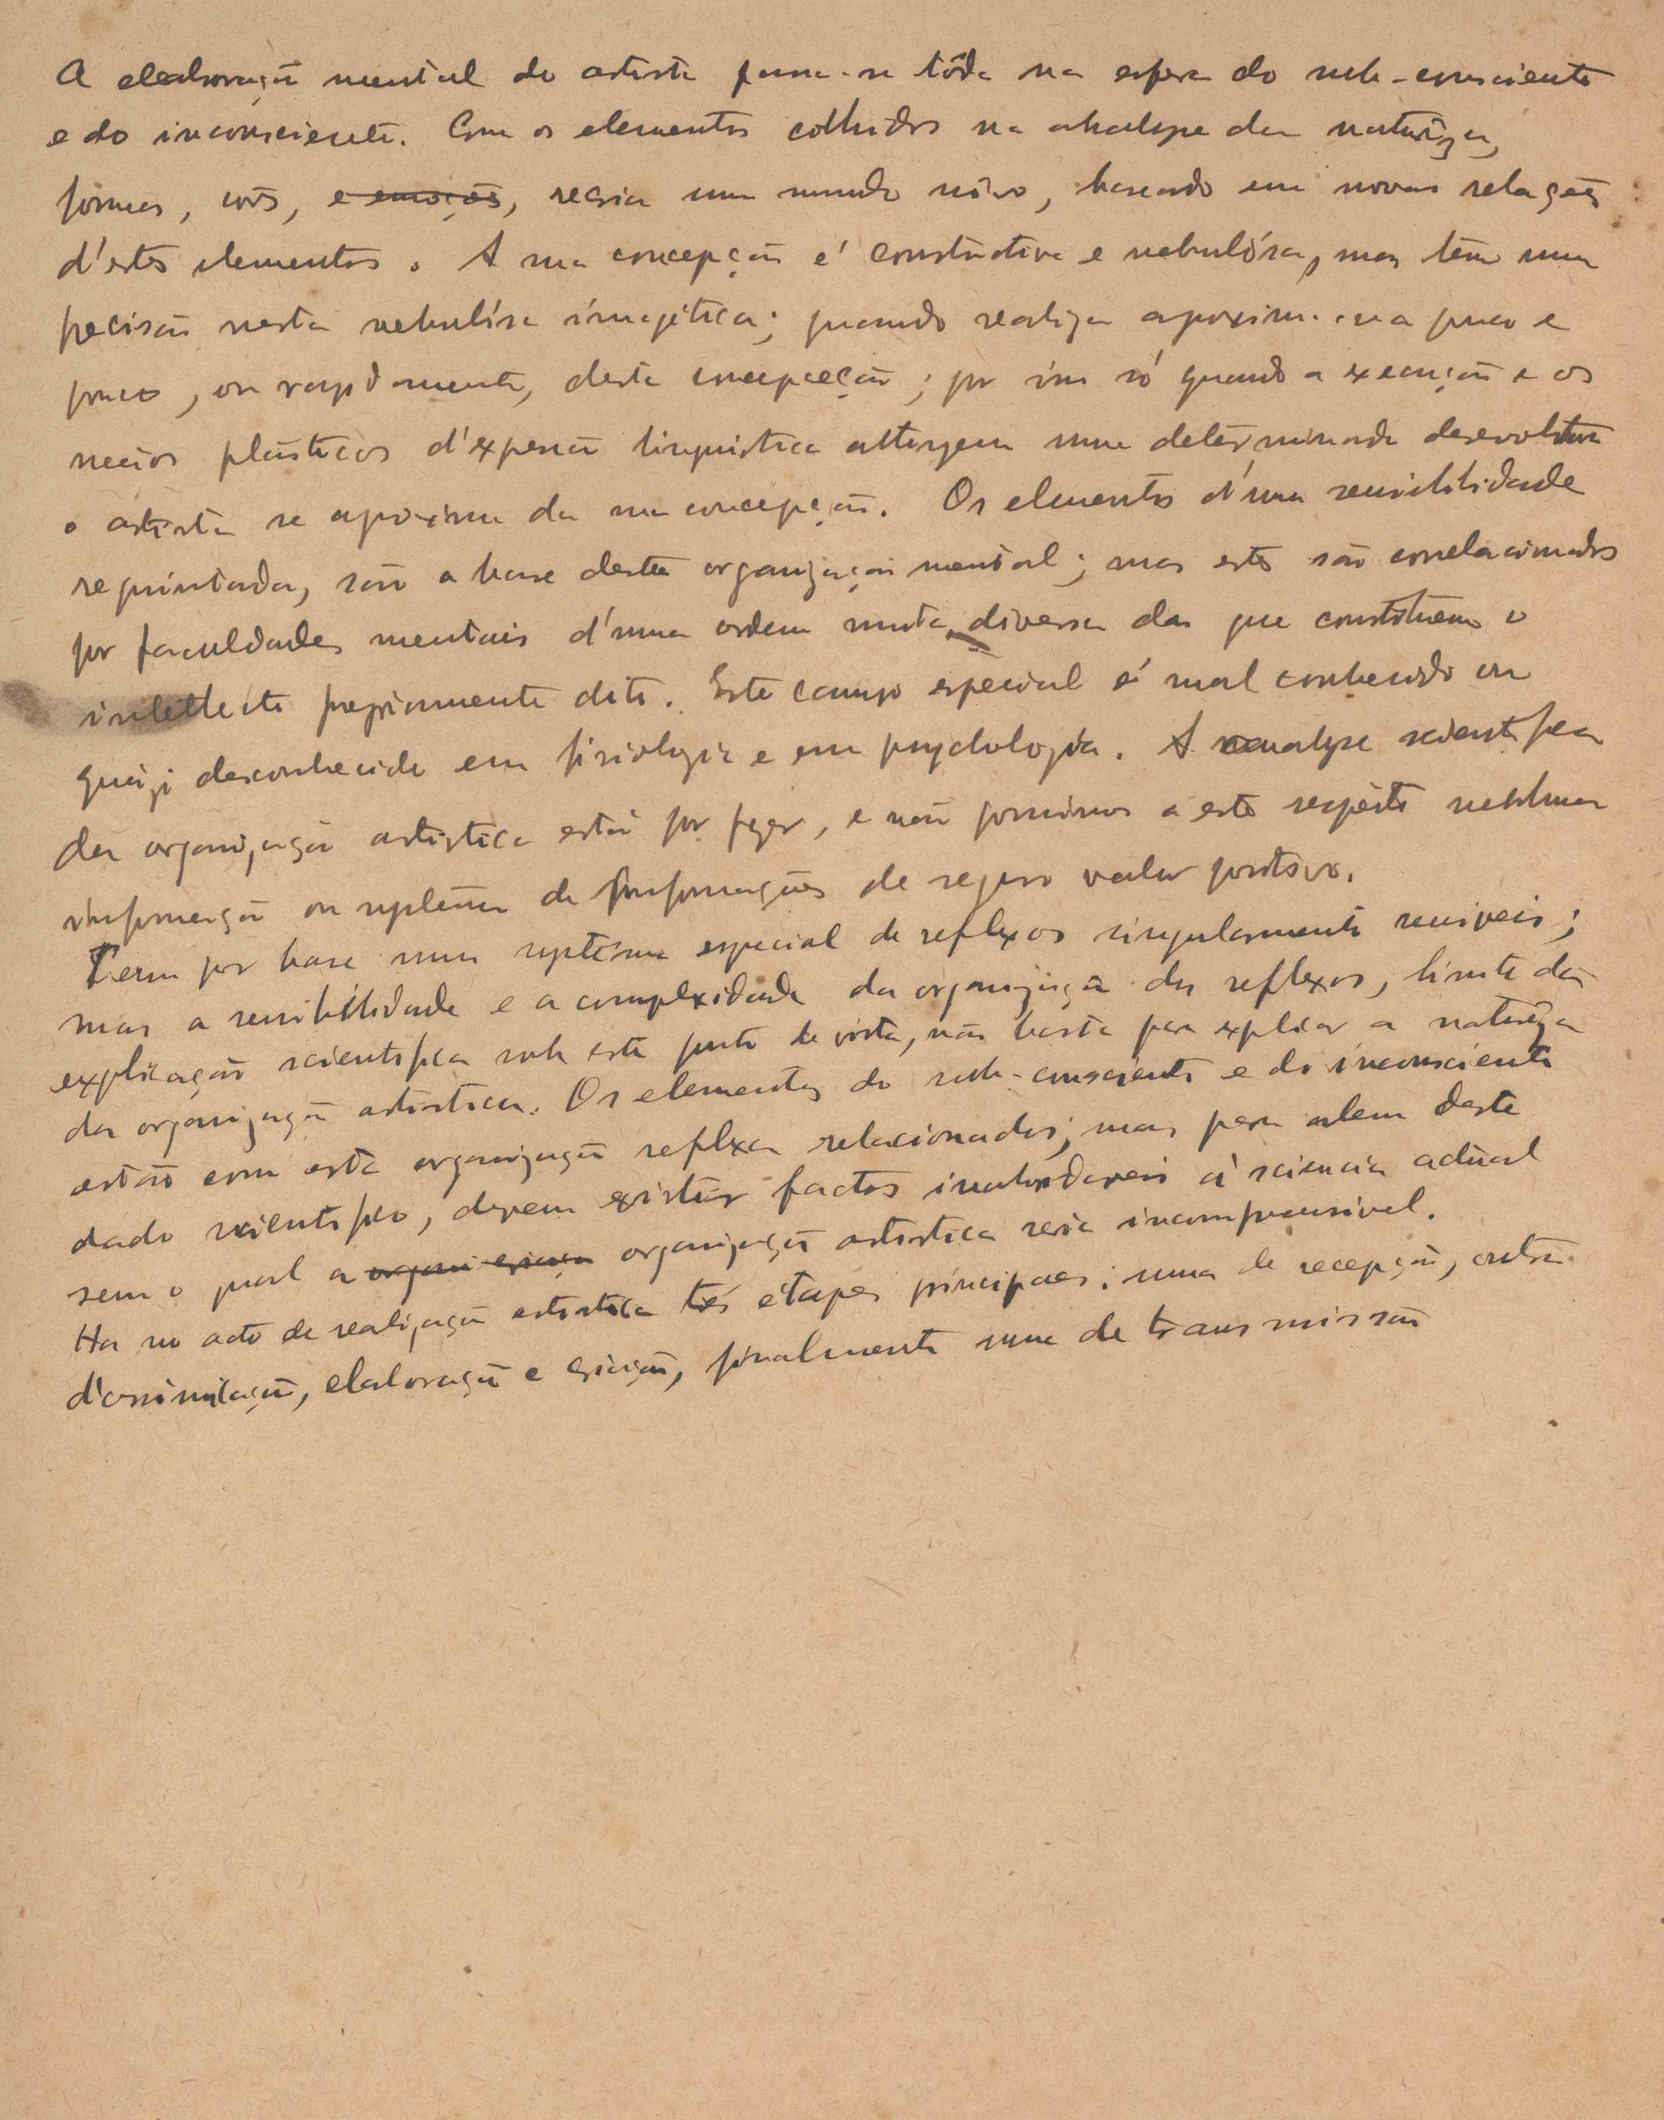 A elaboração mental do artista passa-se tôda na esfera do sub-consciente
e do inconsciente. Com os elementos colhidos na analyse da naturêza,
fórmas, côrs, e emoções, recria um mundo nôvo, baseado em novas relações
d'estes elementos. A sua concepção é constructiva e nebulósa, mas tem uma
precisão nesta nebulósa imagética; quando realiza aproxima-se a pouco e
pouco, ou rapidamente, desta concepção; por isso só quando a execução e os
meios plásticos d'expressão linguistica attingem uma determinada desenvoltura
o artista se aproxima da sua concepção. Os elementos d'uma sensibilidade
requintada, são a base desta organização mental; mas estes são correlacionados
por faculdades mentais d'uma ordem muito diversa das que constituem o
intellecto propriamente dito. Este campo especial é mal conhecido ou
quázi desconhecido em fisiologia e em psychologia. A analyse scientifica
da organização artistica está por fazer, e não possuimos a este respeito nenhuma
informação ou systema de informações de seguro valor positivo.
Tem por base um systema especial de reflexos singularmente sensiveis;
mas a sensibilidade e a complexidade da organização dos reflexos, limite da
explicação scientifica sob este ponto de vista, não basta para explicar a naturêza
da organização artistica. Os elementos do sub-consciente e do inconsciente
estão com esta organização reflexa relacionados; mas para alem deste
dado scientifico, devem existir factos inabordaveis á sciencia actual
sem o qual a organi criaça organização artistica seria incomprensivel.
Ha no acto de realização artistica três étapes principaes: uma de recepção, outra
d'assimilação, elaboração e criação, finalmente uma de transmissão